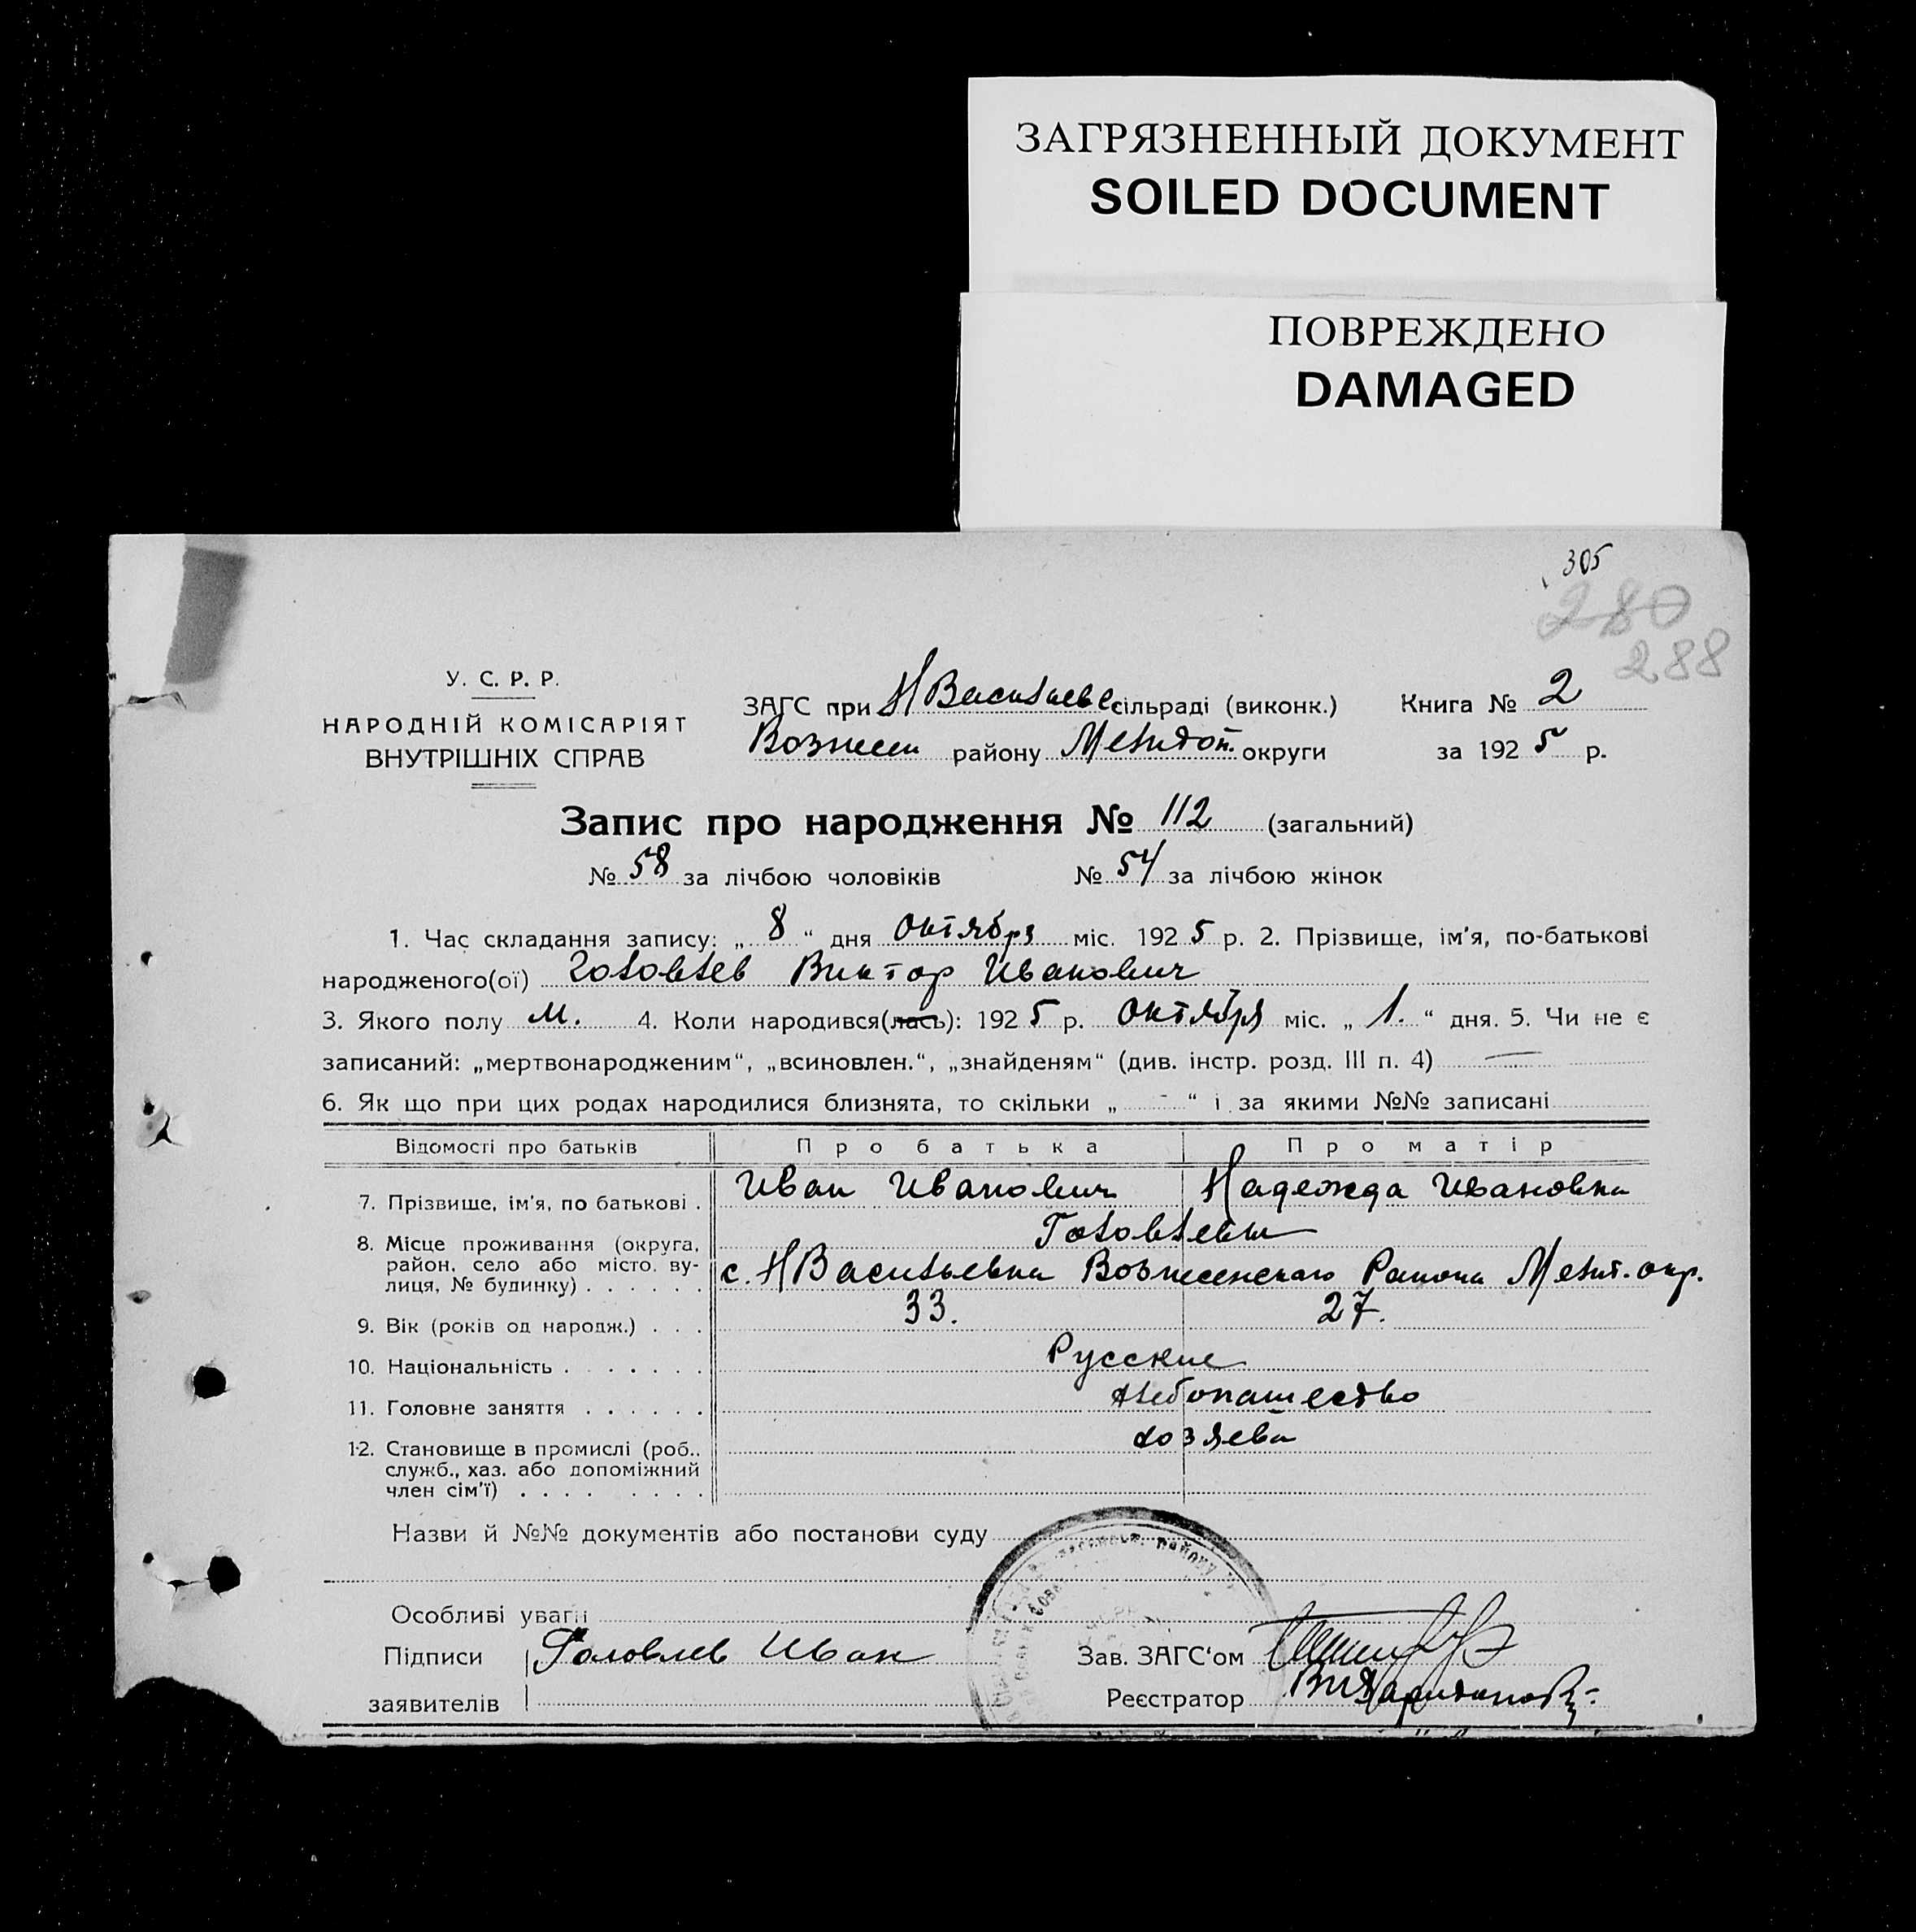 ЗАГРЯЗНЕННЫЙ ДОКУМЕНТ
SOILED DOCUMENT
ПОВРЕЖДЕНО
DAMAGED
305
280
288
У. С. Р. Р.
НАРОДНІЙ КОМІСАРІЯТ
ВНУТРІШНІХ СПРАВ
ЗАГС при Н Васильевс сільраді (виконк.) Книга № 2
Вознесен району Мелитоп. округи за 1925 р.
Запис про народження № 112 (загальний)
№ 58 за лічбою чоловіків № 54 за лічбою жінок
1. Час складання запису: „ 8 “ дня октября міс. 1925 р. 2. Прізвище, ім’я, по-батькові
народженого(ої) Головлев Виктор Иванович
3. Якого полу м. 4. Коли народився(лась): 1925 р. октября міс. „ 1. “ дня. 5. Чи не є
записаний: „мертвонародженим“, „всиновлен.“, „знайденям“ (див. інстр. розд. III п. 4) —
6. Як що при цих родах народилися близнята, то скільки „ - “ і за якими №№ записані
Відомості про батьків Про батька Про матір
7. Прізвище, ім’я, по батькові . Иван Иванович Надежда Ивановна
Головлевы
8. Місце проживання (округа, район, село або місто, вулиця, № будинку) . . . . . . с. Н Васильевка Вознесенскаго Района Мелит. окр.
9. Вік (років од народж.) . . . 33. 27.
10. Національність . . . . . . . Русские
11. Головне заняття . . . . . . хлебопашество
12. Становище в промислі (роб., служб., хаз. або допоміжний член сім’ї) . . . . . . . . . хозяева
Назви й №№ документів або постанови суду
Особливі уваги
Підписи Головлев Иван Зав. ЗАГС‘ом
заявителів Реєстратор